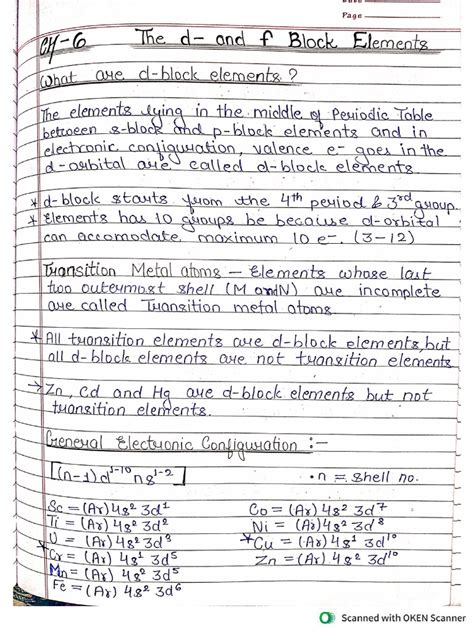 Page
CH-6 The d- and f Block Elements
What are d-block elements?
The elements lying in the middle of Periodic Table
between s-block and p-block elements and in
electronic configuration, valence e- goes in the
d-orbital are called d-block elements.
* d-block starts from the 4th period & 3rd group.
* Elements has 10 groups be because d-orbital
can accomodate maximum 10 e-. (3-12)
Transition Metal atoms - Elements whose last
two outermost shell (M and N) are incomplete
are called Transition metal atoms.
* All transition elements are d-block elements, but
all d-block elements are not transition elements
→ Zn, Cd and Hg are d-block elements but not
transition elements.
General Electronic Configuration :-
[(n-1)d¹⁻¹⁰ ns¹⁻²] • n = shell no.
Sc = (Ar) 4s² 3d¹ Co = (Ar) 4s² 3d⁷
Ti = (Ar) 4s² 3d² Ni = (Ar) 4s² 3d⁸
U = (Ar) 4s² 3d³ * Cu = (Ar) 4s¹ 3d¹⁰
* Cr = (Ar) 4s¹ 3d⁵ Zn = (Ar) 4s² 3d¹⁰
Mn = (Ar) 4s² 3d⁵
Fe = (Ar) 4s² 3d⁶
Scanned with OKEN Scanner